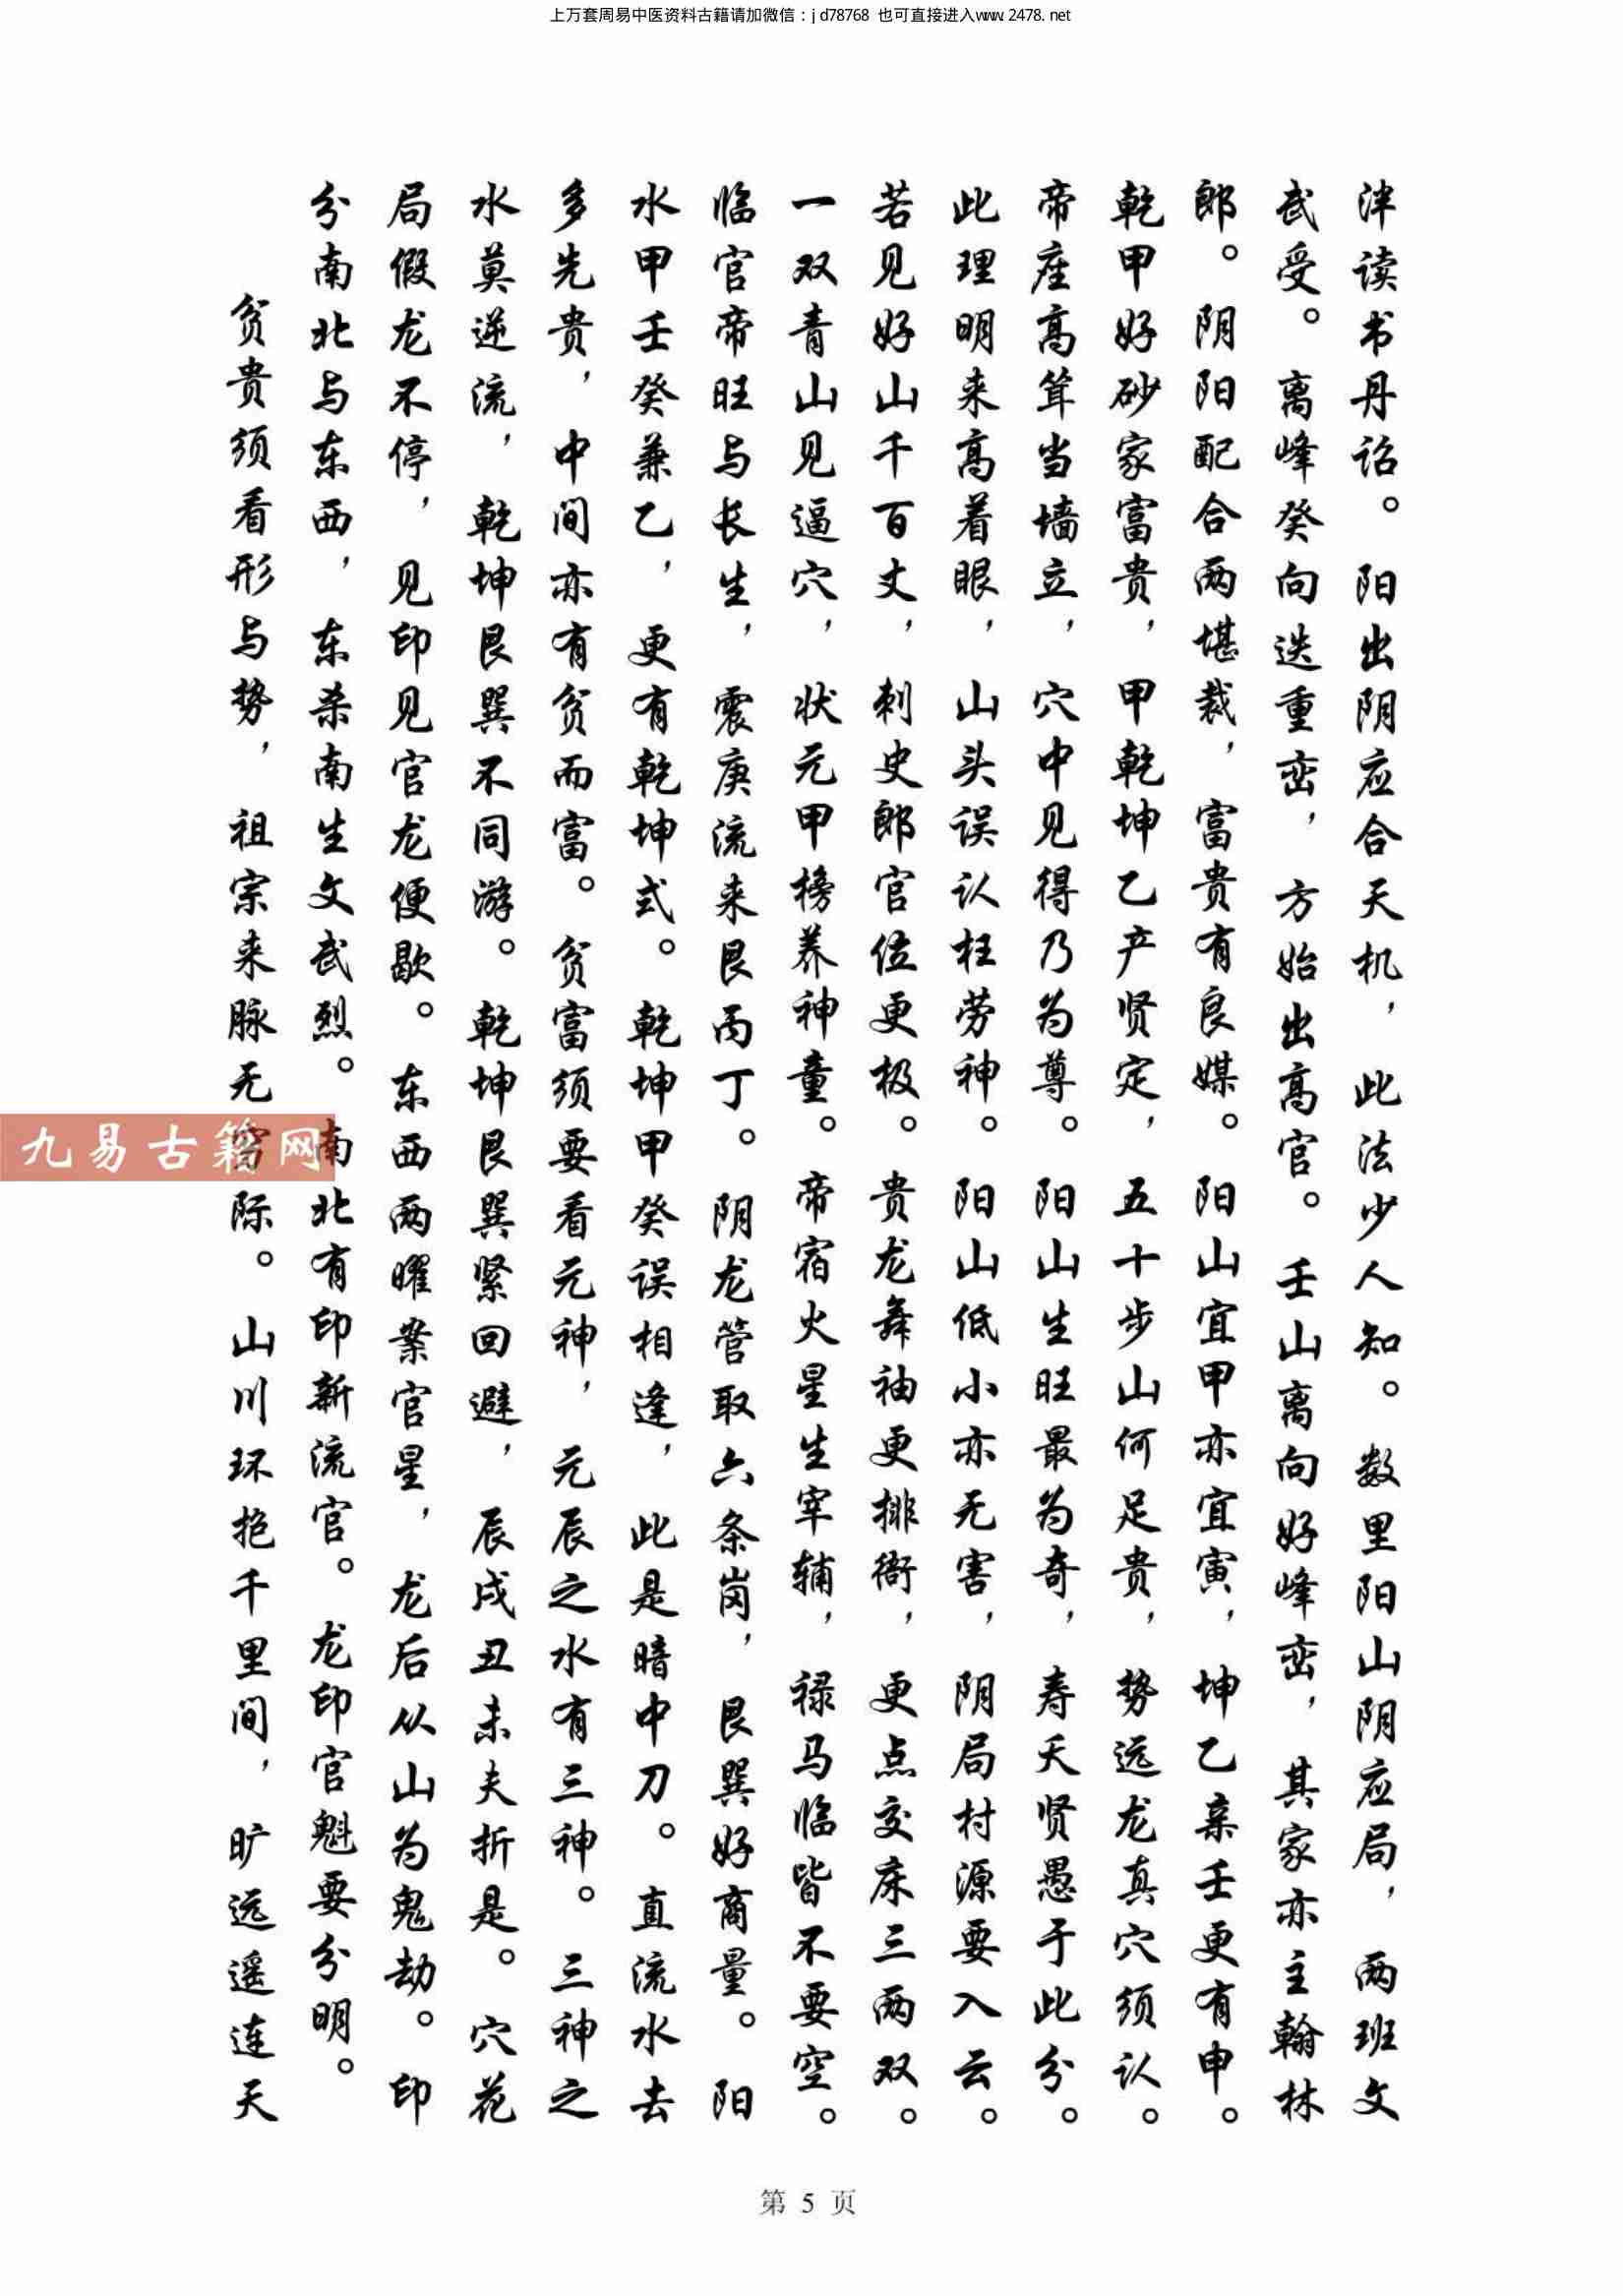 上万套周易中医资料古籍请加微信：jd78768 也可直接进入www.2478.net
泮读书丹诏。阳出阴应合天机，此法少人知。数里阳山阴应局，两班文
武受。离峰癸向迭重峦，方始出高官。壬山离向好峰峦，其家亦主翰林
郎。阴阳配合两堪裁，富贵有良媒。阳山宜甲亦宜寅，坤乙亲壬更有申。
乾甲好砂家富贵，甲乾坤乙产贤定，五十步山何足贵，势远龙真穴须认。
帝座高耸当墙立，穴中见得乃为尊。阳山生旺最为奇，寿夭贤愚于此分。
此理明来高着眼，山头误认枉劳神。阳山低小亦无害，阴局村源要入云。
若见好山千百丈，刺史郎官位更极。贵龙舞袖更排衙，更点交床三两双。
一双青山见逼穴，状元甲榜养神童。帝宿火星生宰辅，禄马临皆不要空。
临官帝旺与长生，震庚流来艮丙丁。阴龙管取六条岗，艮巽好商量。阳
水甲壬癸兼乙，更有乾坤式。乾坤甲癸误相逢，此是暗中刀。直流水去
多先贵，中间亦有贫而富。贫富须要看元神，元辰之水有三神。三神之
水莫逆流，乾坤艮巽不同游。乾坤艮巽紧回避，辰戌丑未夫折是。穴花
局假龙不停，见印见官龙便歇。东西两曜案官星，龙后从山为鬼劫。印
分南北与东西，东杀南生文武烈。南北有印新流官。龙印官魁要分明。
贫贵须看形与势，祖宗来脉无穷际。山川环抱千里间，旷远遥连天
九易古籍网
第 5 页